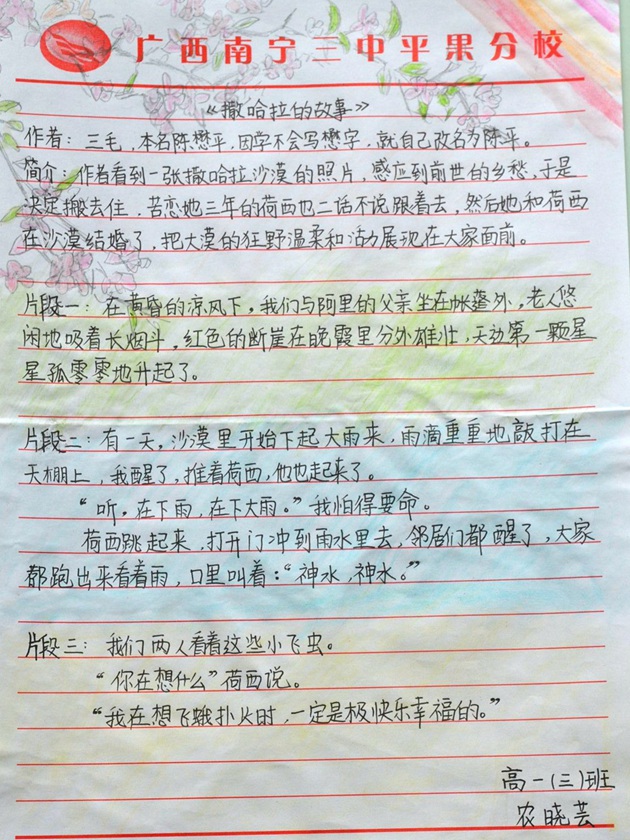 广西南宁三中平果分校
《撒哈拉的故事》
作者：三毛，本名陈懋平，因学不会写懋字，就自己改名为陈平。
简介：作者看到一张撒哈拉沙漠的照片，感应到前世的乡愁，于是
决定搬去住，苦恋她三年的荷西也二话不说跟着去，然后她和荷西
在沙漠结婚了，把大漠的狂野温柔和活力展现在大家面前。
片段一：在黄昏的凉风下，我们与阿里的父亲坐在帐蓬外，老人悠
闲地吸着长烟斗，红色的断崖在晚霞里分外雄壮，天边第一颗星
星孤零零地升起了。
片段二：有一天，沙漠里开始下起大雨来，雨滴重重地敲打在
天棚上，我醒了，推着荷西，他也起来了。
“听，在下雨，在下大雨。”我怕得要命。
荷西跳起来，打开门冲到雨水里去，邻居们都醒了，大家
都跑出来看着雨，口里叫着：“神水，神水。”
片段三：我们两人看着这些小飞虫。
“你在想什么”荷西说。
“我在想飞蛾扑火时，一定是极快乐幸福的。”
高一（三）班
农晓芸